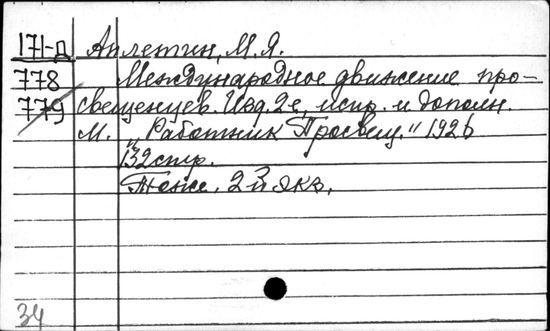 171-д Аплетин, М.Я.
778 Международное движение про-
779 свещенцев. Изд. 2е, испр. и дополн.
М. „Работник Просвещ." 1926
132 стр.
Тоже. 2й экз.
34